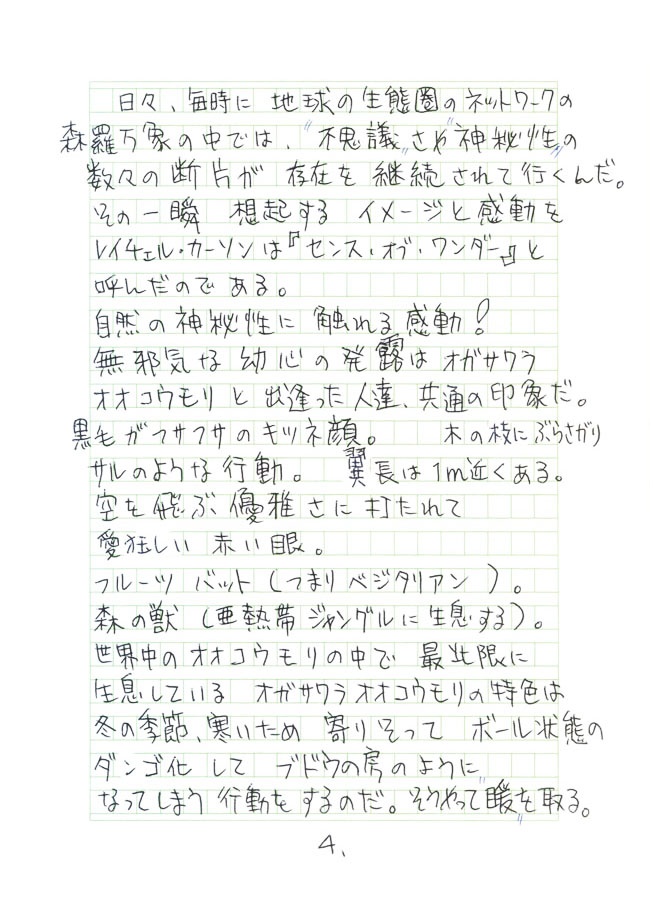 日々、毎時に 地球の生態圏のネットワークの
森羅万象の中では、"不思議"さや"神秘性"の
数々の断片が 存在を 継続されて行くんだ。
その一瞬 想起する イメージと感動を
レイチェル・カーソンは『センス・オブ・ワンダー』と
呼んだのである。
自然の神秘性に 触れる感動!
無邪気な 幼心の発露は オガサワラ
オオコウモリと 出逢った人達、共通の印象だ。
黒毛がフサフサのキツネ顔。 木の枝にぶらさがり
サルのような行動。 翼長は1m近くある。
空を飛ぶ優雅さに打たれて
愛狂しい 赤い眼。
フルーツ バット(つまりベジタリアン)。
森の獣(亜熱帯ジャングルに生息する)。
世界中のオオコウモリの中で 最北限に
生息している オガサワラオオコウモリの特色は
冬の季節、寒いため 寄りそって ボール状態の
ダンゴ化して ブドウの房のように
なってしまう行動をするのだ。そうやって"暖"を取る。
4、